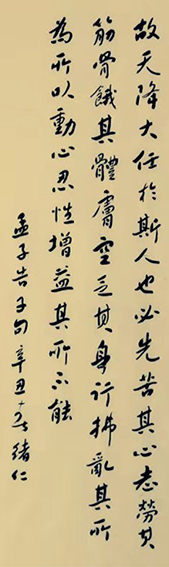 故天降大任於斯人也必先苦其心志勞其
筋骨餓其體膚空乏其身行拂亂其所
為所以動心忍性增益其所不能
孟子告子句辛丑春緒仁